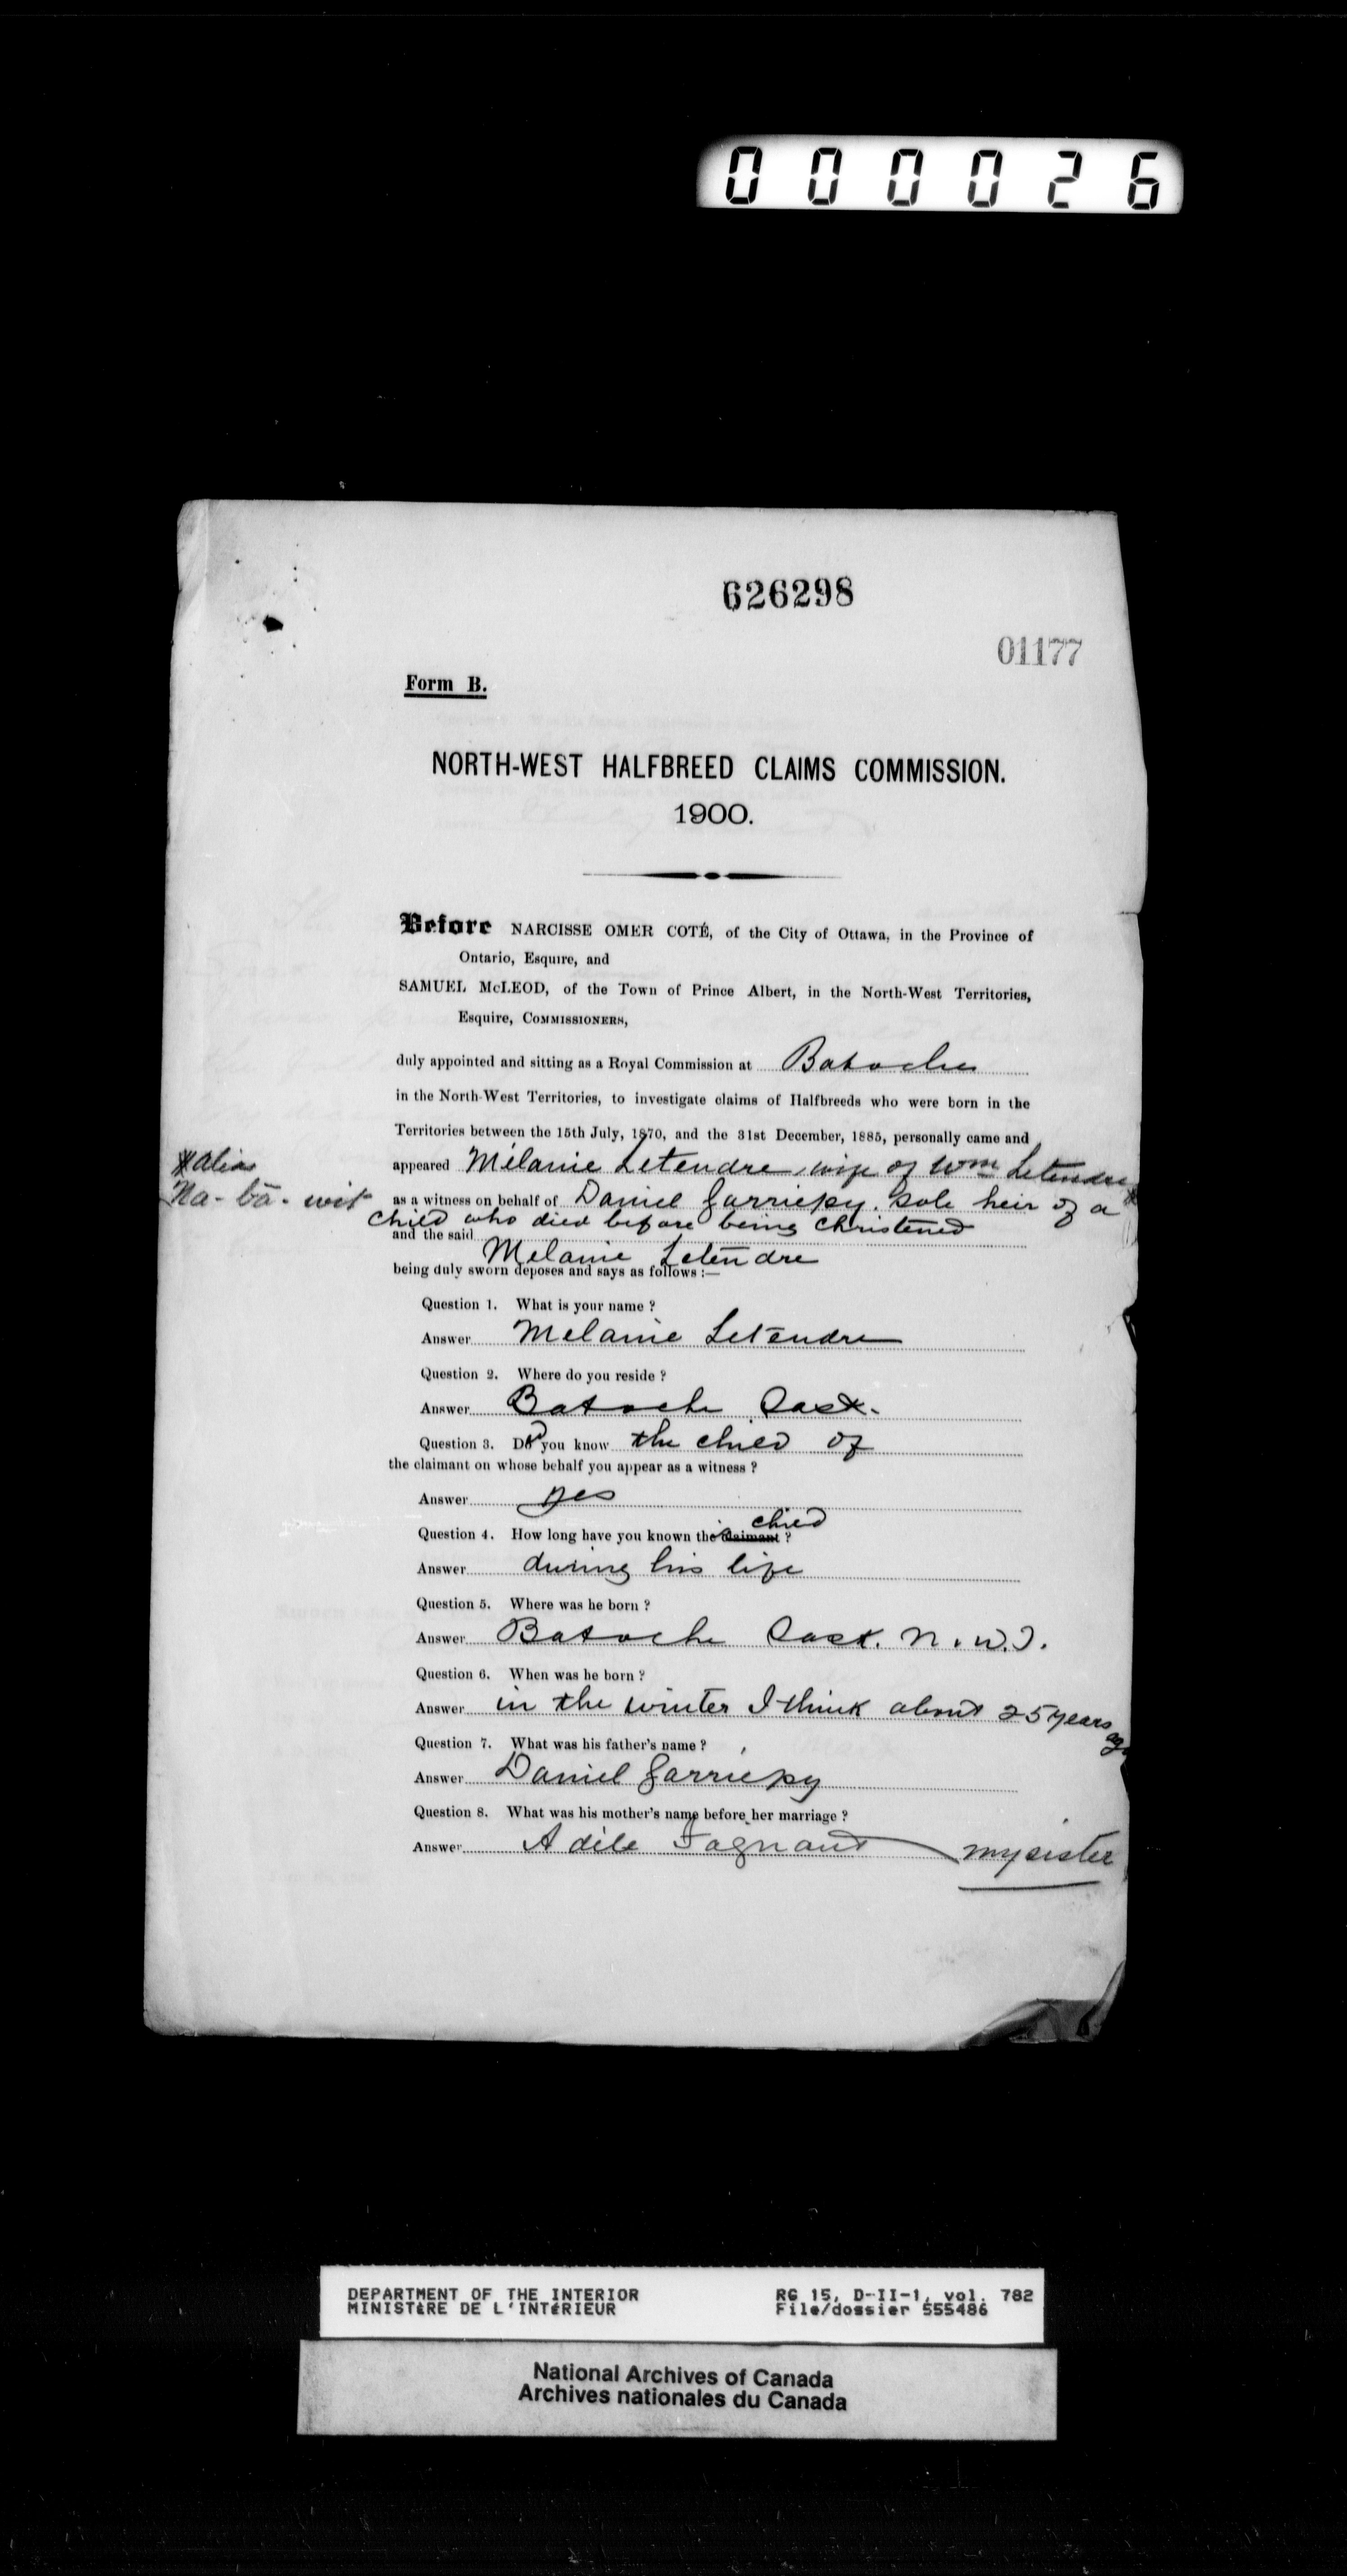 000026
626298
01177
Form B.
NORTH-WEST HALFBREED CLAIMS COMMISSION.
1900.
Before NARCISSE OMER COTÉ, of the City of Ottawa, in the Province of
Ontario, Esquire, and
SAMUEL McLEOD, of the Town of Prince Albert, in the North-West Territories,
Esquire, COMMISSIONERS,
duly appointed and sitting as a Royal Commission at Batoche
in the North-West Territories, to investigate claims of Halfbreeds who were born in the
Territories between the 15th July, 1870, and the 31st December, 1885, personally came and
appeared Mélanie Letendre, wife of Wm Letendre *
* alias
Na-bā-wit
as a witness on behalf of Daniel Garriepy. Sole heir of a
child who died before being christened
and the said
Melanie Letendre
being duly sworn deposes and says as follows :—
Question 1. What is your name ?
Answer Melanie Letendre
Question 2. Where do you reside ?
Answer Batoche Sask.
Question 3. Did you know the child of
the claimant on whose behalf you appear as a witness ?
Answer yes
child
Question 4. How long have you known the claimant ?
Answer during his life
Question 5. Where was he born ?
Answer Batoche Sask. N.W.T.
Question 6. When was he born ?
Answer in the winter I think about 25 years ago
Question 7. What was his father's name ?
Answer Daniel Garriepy
Question 8. What was his mother's name before her marriage ?
Answer Adile Fagnant my sister
DEPARTMENT OF THE INTERIOR
MINISTÈRE DE L'INTÉRIEUR
RG 15, D-II-1, vol. 782
File/dossier 555486
National Archives of Canada
Archives nationales du Canada